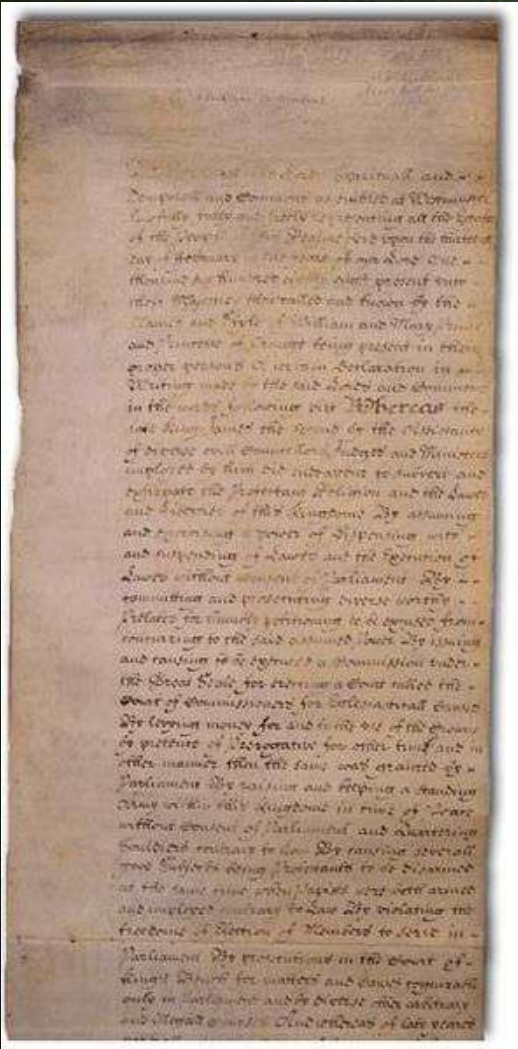 the Lords Spirituall and
Temporall and Commons assembled at Westminster
lawfully fully and freely representing all the Estates
of the People of this Realme did upon the thirteenth
day of February in the yeare of our Lord One
thousand six hundred eighty eight present unto
their Majesties then called and knowne by the
Names and Stile of William and Mary Prince
and Princesse of Orange being present in their
proper persons A certain Declaration in
Writeing made by the said Lords and Commons
in the words following viz Whereas the
late King James the Second by the Assistance
of diverse evill Councellors Judges and Ministers
imployed by him did endeavour to subvert and
extirpate the Protestant Religion and the Lawes
and Liberties of this Kingdome By assuming
and exercising a power of Dispensing with
and suspending of Lawes and the Execution of
Lawes without consent of Parliament By
committing and prosecuting diverse worthy
Prelates for humbly petitioning to be excused from
concurring to the said assumed Power By issuing
and causing to be executed a Commission under
the Great Seale for erecting a Court called the
Court of Commissioners for Ecclesiasticall Causes
By levying money for and to the use of the Crowne
by pretence of Prerogative for other time and in
other manner then the same was granted by
Parliament By raising and keeping a standing
Army within this Kingdome in time of Peace
without Consent of Parliament and Quartering
Souldiers contrary to Law By causing severall
good Subjects being Protestants to be disarmed
at the same time when Papists were both armed
and imployed contrary to Law By violating the
freedome of Election of Members to serve in
Parliament By prosecutions in the Court of
Kings Bench for matters and causes cognizable
onely in Parliament and by diverse other arbitrary
and illegall courses And whereas of late yeares